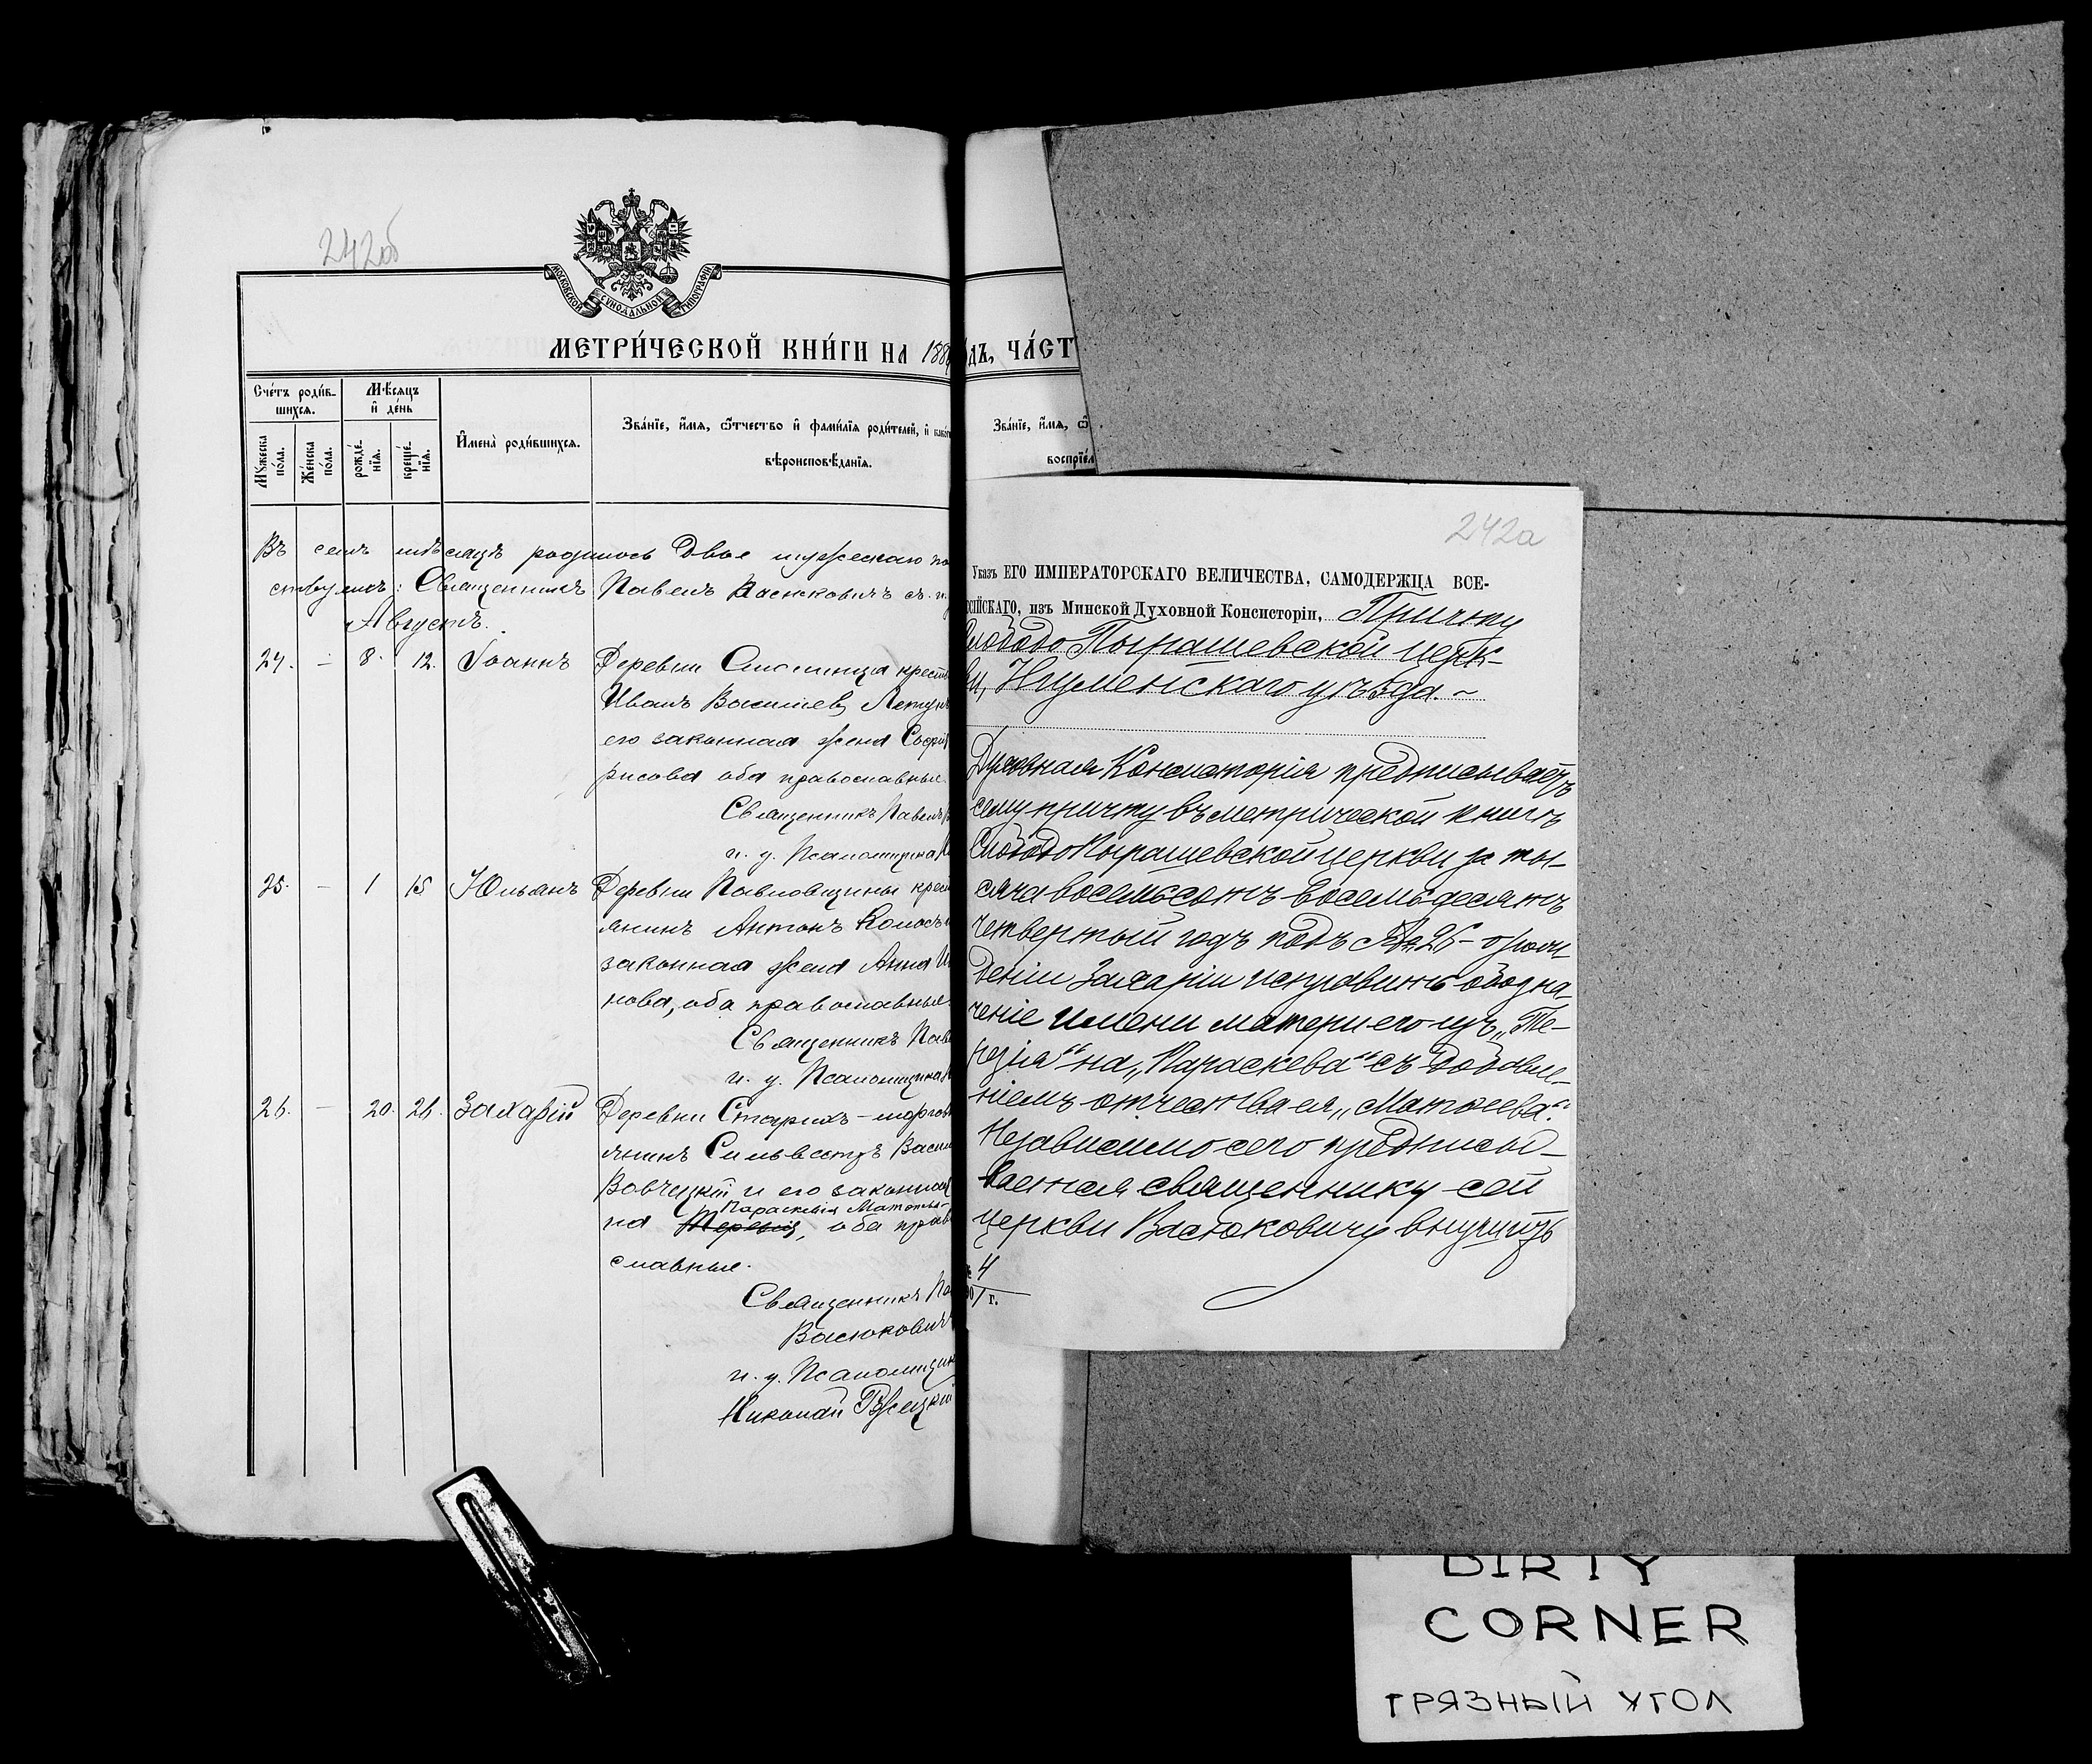 242об
МОСКОВСКОЙ СѴНОДАЛЬНОЙ ТИПОГРАФІИ
МЕТРИ́ЧЕСКОЙ КНИ́ГИ НА 1884
Сче́тъ роди́в-
шихся.
Мѣ́сяцъ
и҆ де́нь
Мꙋ́жеска
по́ла.
Же́нска
по́ла.
рожде́-
нїѧ.
креще́-
нїѧ.
И҆мена̀ роди́вшихсѧ.
Зва́нїе, и҆́мѧ, ѻ҆́тчество и҆ фами́лїѧ роди́телей, и҆
вѣроисповѣ́данїѧ.
Въ семъ мѣсяцѣ родилось двое мужескаго по
ствуемъ: Священникъ Павелъ Васюковичъ
Августъ.
24. - 8. 12. Іоаннъ Деревни крест
Иванъ Василіевъ Летун
его законная жена Соф
рисова оба православные.
Священникъ Павелъ
и. д. Псаломщика
25. - 1 15 Юльянъ Деревни Павловщины крес
янинъ Антонъ Колосъ
законная жена Анна И
нова, оба православные.
Священникъ Павел
и. д. Псаломщика
26. - 20. 26. Захарій Деревни Старихъ-
янинъ Сильвестръ Васил
Вовчецкій и его законная
Параскевія Матөѣе-
на Терезія, оба право
славные.
Священникъ Па
Васюковичъ
и. д. Псаломщик
Николай
дъ, ЧА́СТ
Зва́нїе, и҆́мѧ, ѻ҆́
воспрїе́м
242а
Указъ ЕГО ИМПЕРАТОРСКАГО ВЕЛИЧЕСТВА, САМОДЕРЖЦА ВСЕ-
РОССІЙСКАГО, изъ Минской Духовной Консисторіи, Причту
Слободо Пырашевской церк-
ви, Игуменскаго уѣзда. ~
Духовная Консисторія предписываетъ
сему причту въ метрической книгѣ
Слободо Пырашевской церкви за ты-
сяча восемьсотъ восемьдесятъ
четвертый годъ подъ № 26 - о рож-
деніи Захаріи исправить обозна-
ченіе имени матери его изъ „Те-
резія“ на „Параскева“ съ добавле-
ніемъ отчества ея „Матөеева“.
Независимо сего предписы-
вается священнику сей
церкви Васюковичу внушить
4
1 г.
DIRTY
CORNER
ГРЯЗНЫЙ УГОЛ